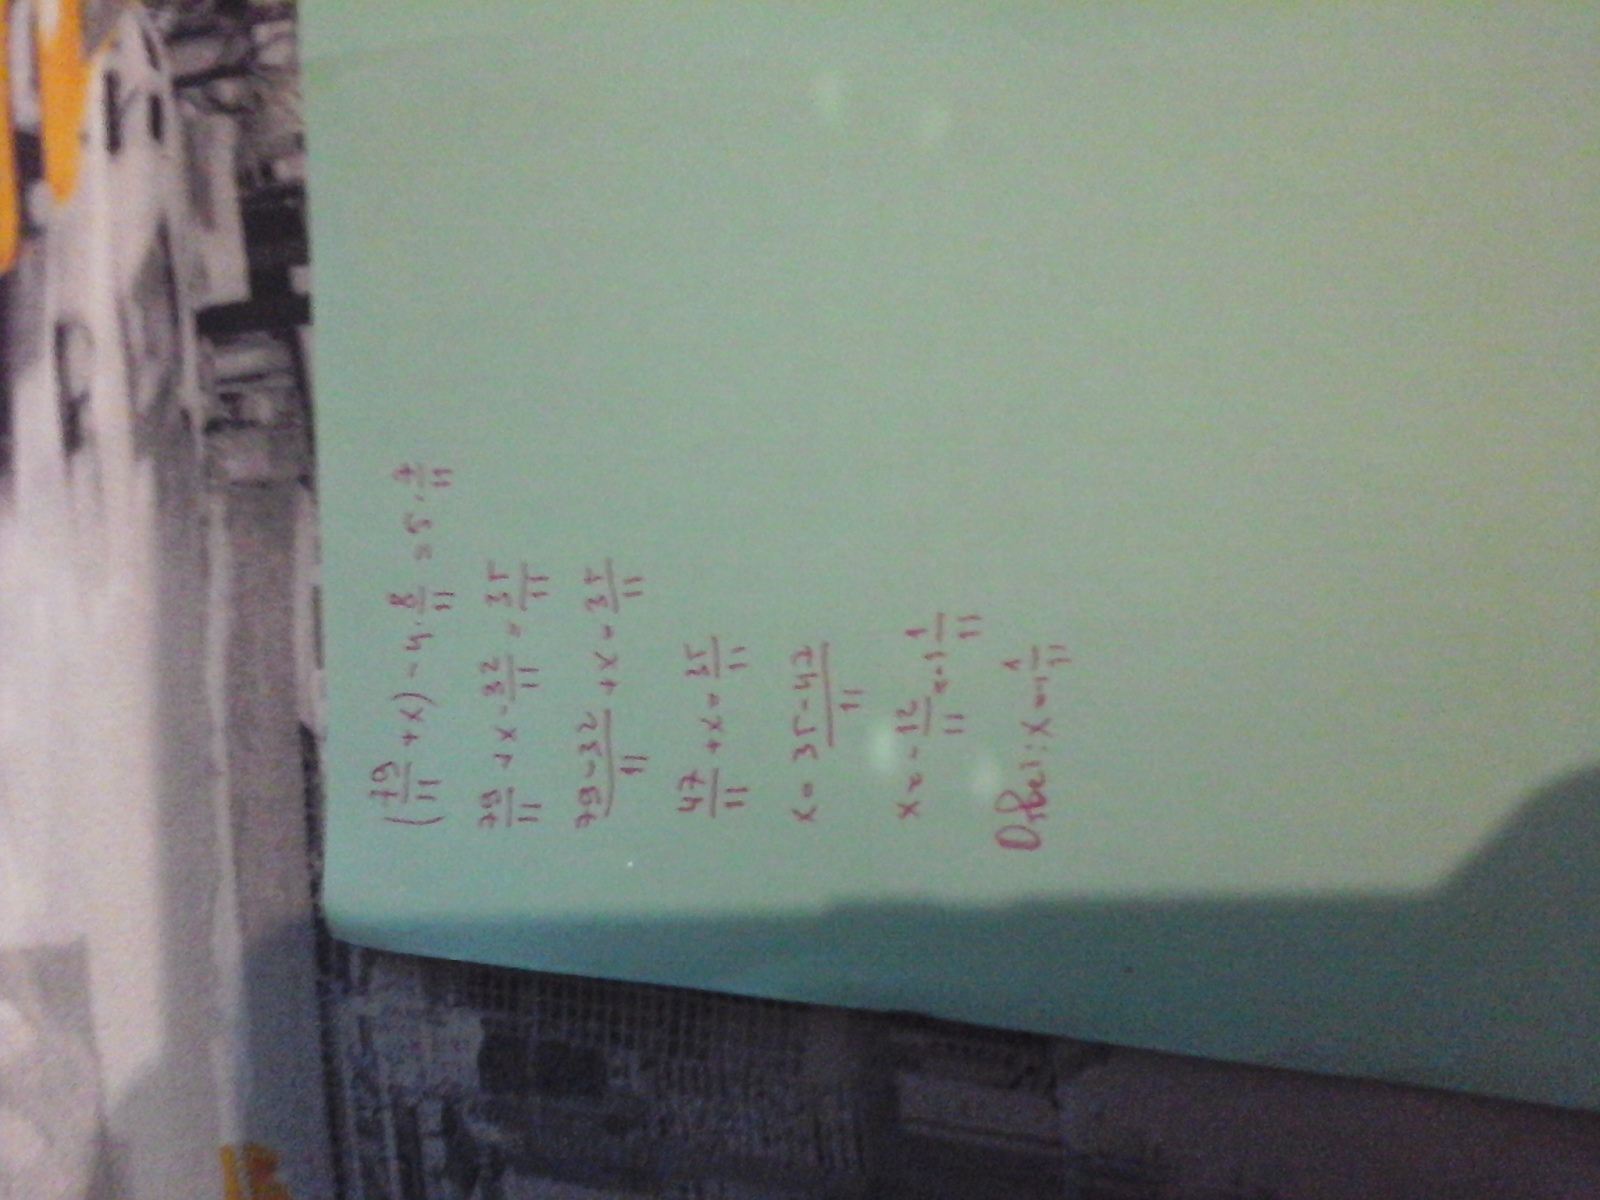 (79/11 + x) - 4 · 8/11 = 5 · 7/11
79/11 + x - 32/11 = 35/11
79-32/11 + x = 35/11
47/11 + x = 35/11
x = 35-47/11
x = - 12/11 = -1 1/11
Ответ: x = -1 1/11